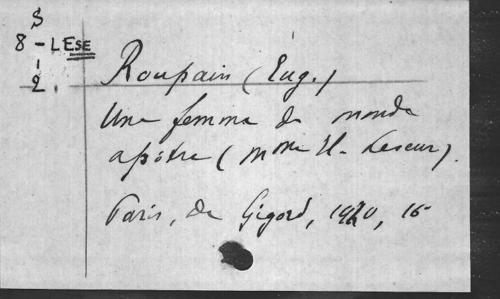 S
8 - LESE
2.
Roupain (Eug.)
Une femme du monde
apôtre (Mme E. Leseur).
Paris, de Gigord, 1920, 16